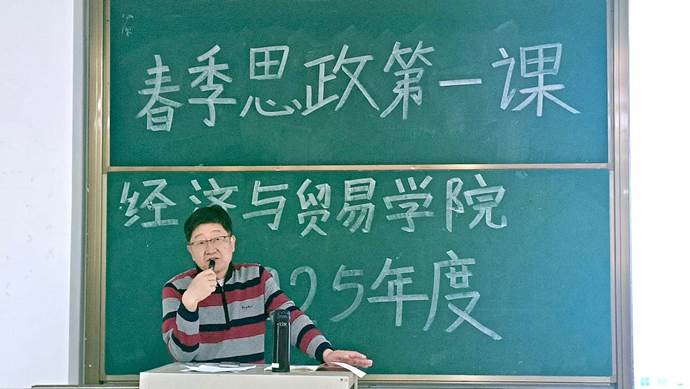 春季思政第一课
经济与贸易学院
25年度